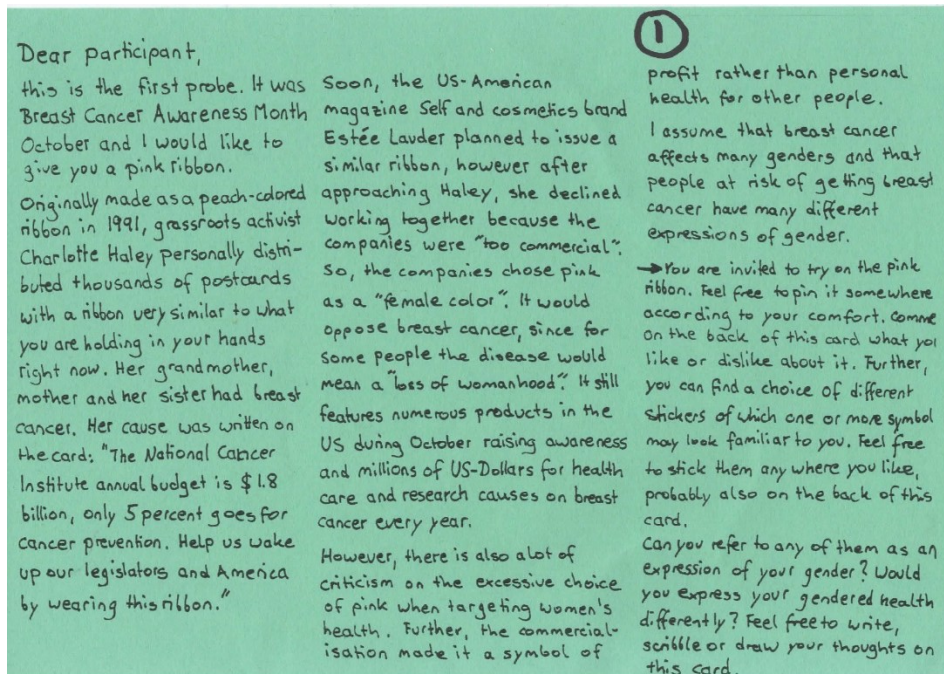 Dear participant,
this is the first probe. It was
Breast Cancer Awareness Month
October and I would like to
give you a pink ribbon.
Originally made as a peach-colored
ribbon in 1991, grassroots activist
Charlotte Haley personally distri-
buted thousands of postcards
with a ribbon very similar to what
you are holding in your hands
right now. Her grandmother,
mother and her sister had breast
cancer. Her cause was written on
the card: "The National Cancer
Institute annual budget is $1.8
billion, only 5 percent goes for
cancer prevention. Help us wake
up our legislators and America
by wearing this ribbon."
Soon, the US-American
magazine Self and cosmetics brand
Estée Lauder planned to issue a
similar ribbon, however after
approaching Haley, she declined
working together because the
companies were "too commercial".
So, the companies chose pink
as a "female color". It would
oppose breast cancer, since for
some people the disease would
mean a "loss of womanhood". It still
features numerous products in the
US during October raising awareness
and millions of US-Dollars for health
care and research causes on breast
cancer every year.
However, there is also alot of
criticism on the excessive choice
of pink when targeting women's
health. Further, the commercial-
isation made it a symbol of
1
profit rather than personal
health for other people.
I assume that breast cancer
affects many genders and that
people at risk of getting breast
cancer have many different
expressions of gender.
→You are invited to try on the pink
ribbon. Feel free to pin it somewhere
according to your comfort. Comme
on the back of this card what you
like or dislike about it. Further,
you can find a choice of different
stickers of which one or more symbol
may look familiar to you. Feel free
to stick them any where you like,
probably also on the back of this
card.
Can you refer to any of them as an
expression of your gender? Would
you express your gendered health
differently? Feel free to write,
scribble or draw your thoughts on
this card.